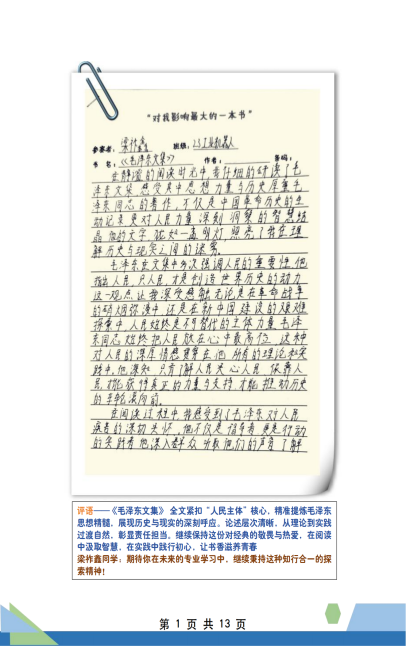 “对我影响最大的一本书”
参赛者：梁祚鑫 班级：23工业机器人
书 名：《毛泽东文集》 作者： 条码：
在静谧的阅读时光中，我仔细的研读了毛
泽东文集 感受其中思想力量与历史厚重毛
泽东同志的著作 不仅是中国革命历史的生
动记录 更对人民力量 深刻 洞察的智慧结
晶 他的文字 犹如一盏明灯，照亮了我在理
解历史与现实之间的迷雾。
毛泽东在文集中多次强调人民的重要性 他
指出人民，只人民，才是创造世界历史的动力
这一观点 让我深受感触 无论是在革命战争
的硝烟弥漫中 还是在新中国建设的艰难
探索中，人民始终是不可替代的主体力量 毛泽
东同志 始终把人民放在心中最高位，这种
对人民的深厚情感贯穿在他 所有的理论和实
践中，他深知 只有了解人民 关心人民 依靠人
民，才能获得真正的力量与支持 才能 推动历史
的车轮滚向前。
在阅读过程中 我感受到了毛泽东对人民
群众的深切关怀，他不仅是指导者 更是行动
的实践者 他深入群众 听取他们的声音 了解
评语——《毛泽东文集》 全文紧扣“人民主体”核心，精准提炼毛泽东
思想精髓，展现历史与现实的深刻呼应。论述层次清晰，从理论到实践
过渡自然，彰显责任担当。继续保持这份对经典的敬畏与热爱，在阅读
中汲取智慧，在实践中践行初心，让书香滋养青春
梁祚鑫同学：期待你在未来的专业学习中，继续秉持这种知行合一的探
索精神！
第 1 页 共 13 页